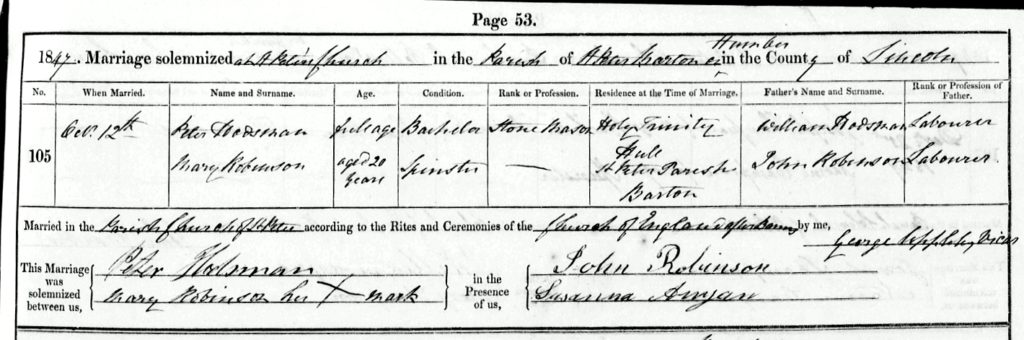 Page 53.
1847. Marriage solemnized at St Peter's Church in the Parish of St Peter Barton on Humber in the County of Lincoln
No. When Married. Name and Surname. Age. Condition. Rank or Profession. Residence at the Time of Marriage. Father's Name and Surname. Rank or Profession of Father.
105 Oct. 12th Peter Hodsman full age Bachelor Stone Mason Holy Trinity Hull William Hodsman Labourer
Mary Robinson aged 20 Years Spinster — St Peter Parish Barton John Robinson Labourer
Married in the Parish Church of St Peter according to the Rites and Ceremonies of the Church of England after Banns by me,
George Uppleby Vicar
This Marriage was solemnized between us, Peter Hodsman in the Presence of us, John Robinson
Mary Robinson her X mark Susanna